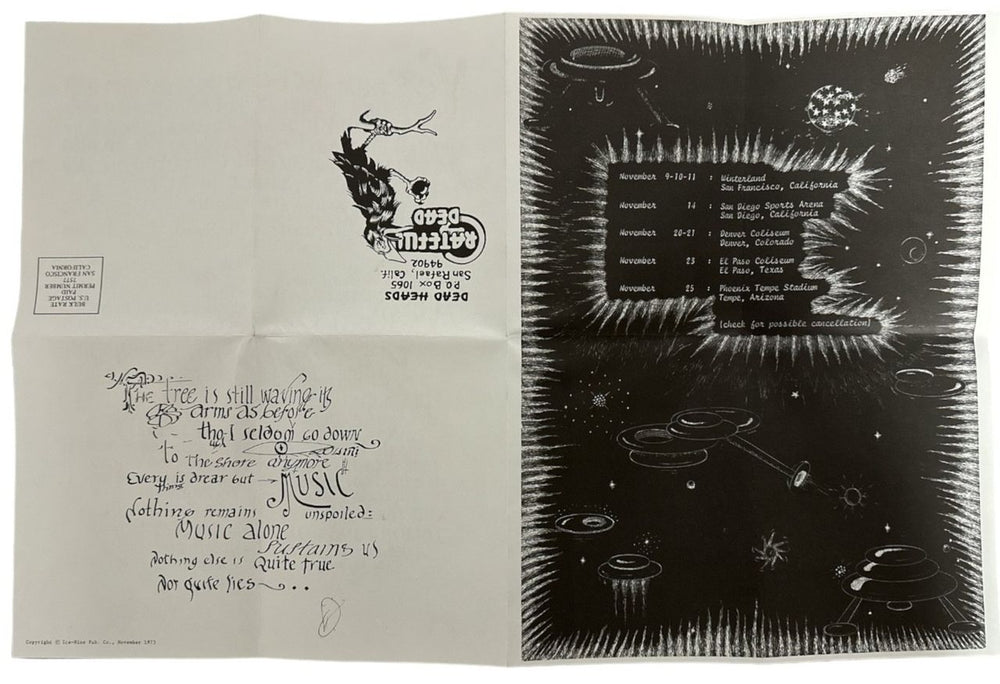 DEAD HEADS
P.O. Box 1065
San Rafael, Calif.
94902
GRATEFUL
DEAD
BULK RATE
U.S. POSTAGE
PAID
PERMIT NUMBER
7577
SAN FRANCISCO
CALIFORNIA
THE tree is still waving its
arms as before
tho I seldom go down
to the shore anymore
Every thing is drear but → MUSIC
Nothing remains unspoiled:
Music alone
sustains us
Nothing else is Quite true
Nor quite lies
Copyright © Ice-Nine Pub. Co., November 1973
November 9-10-11 : Winterland
San Francisco, California
November 14 : San Diego Sports Arena
San Diego, California
November 20-21 : Denver Coliseum
Denver, Colorado
November 23 : El Paso Coliseum
El Paso, Texas
November 25 : Phoenix Tempe Stadium
Tempe, Arizona
(check for possible cancellation)